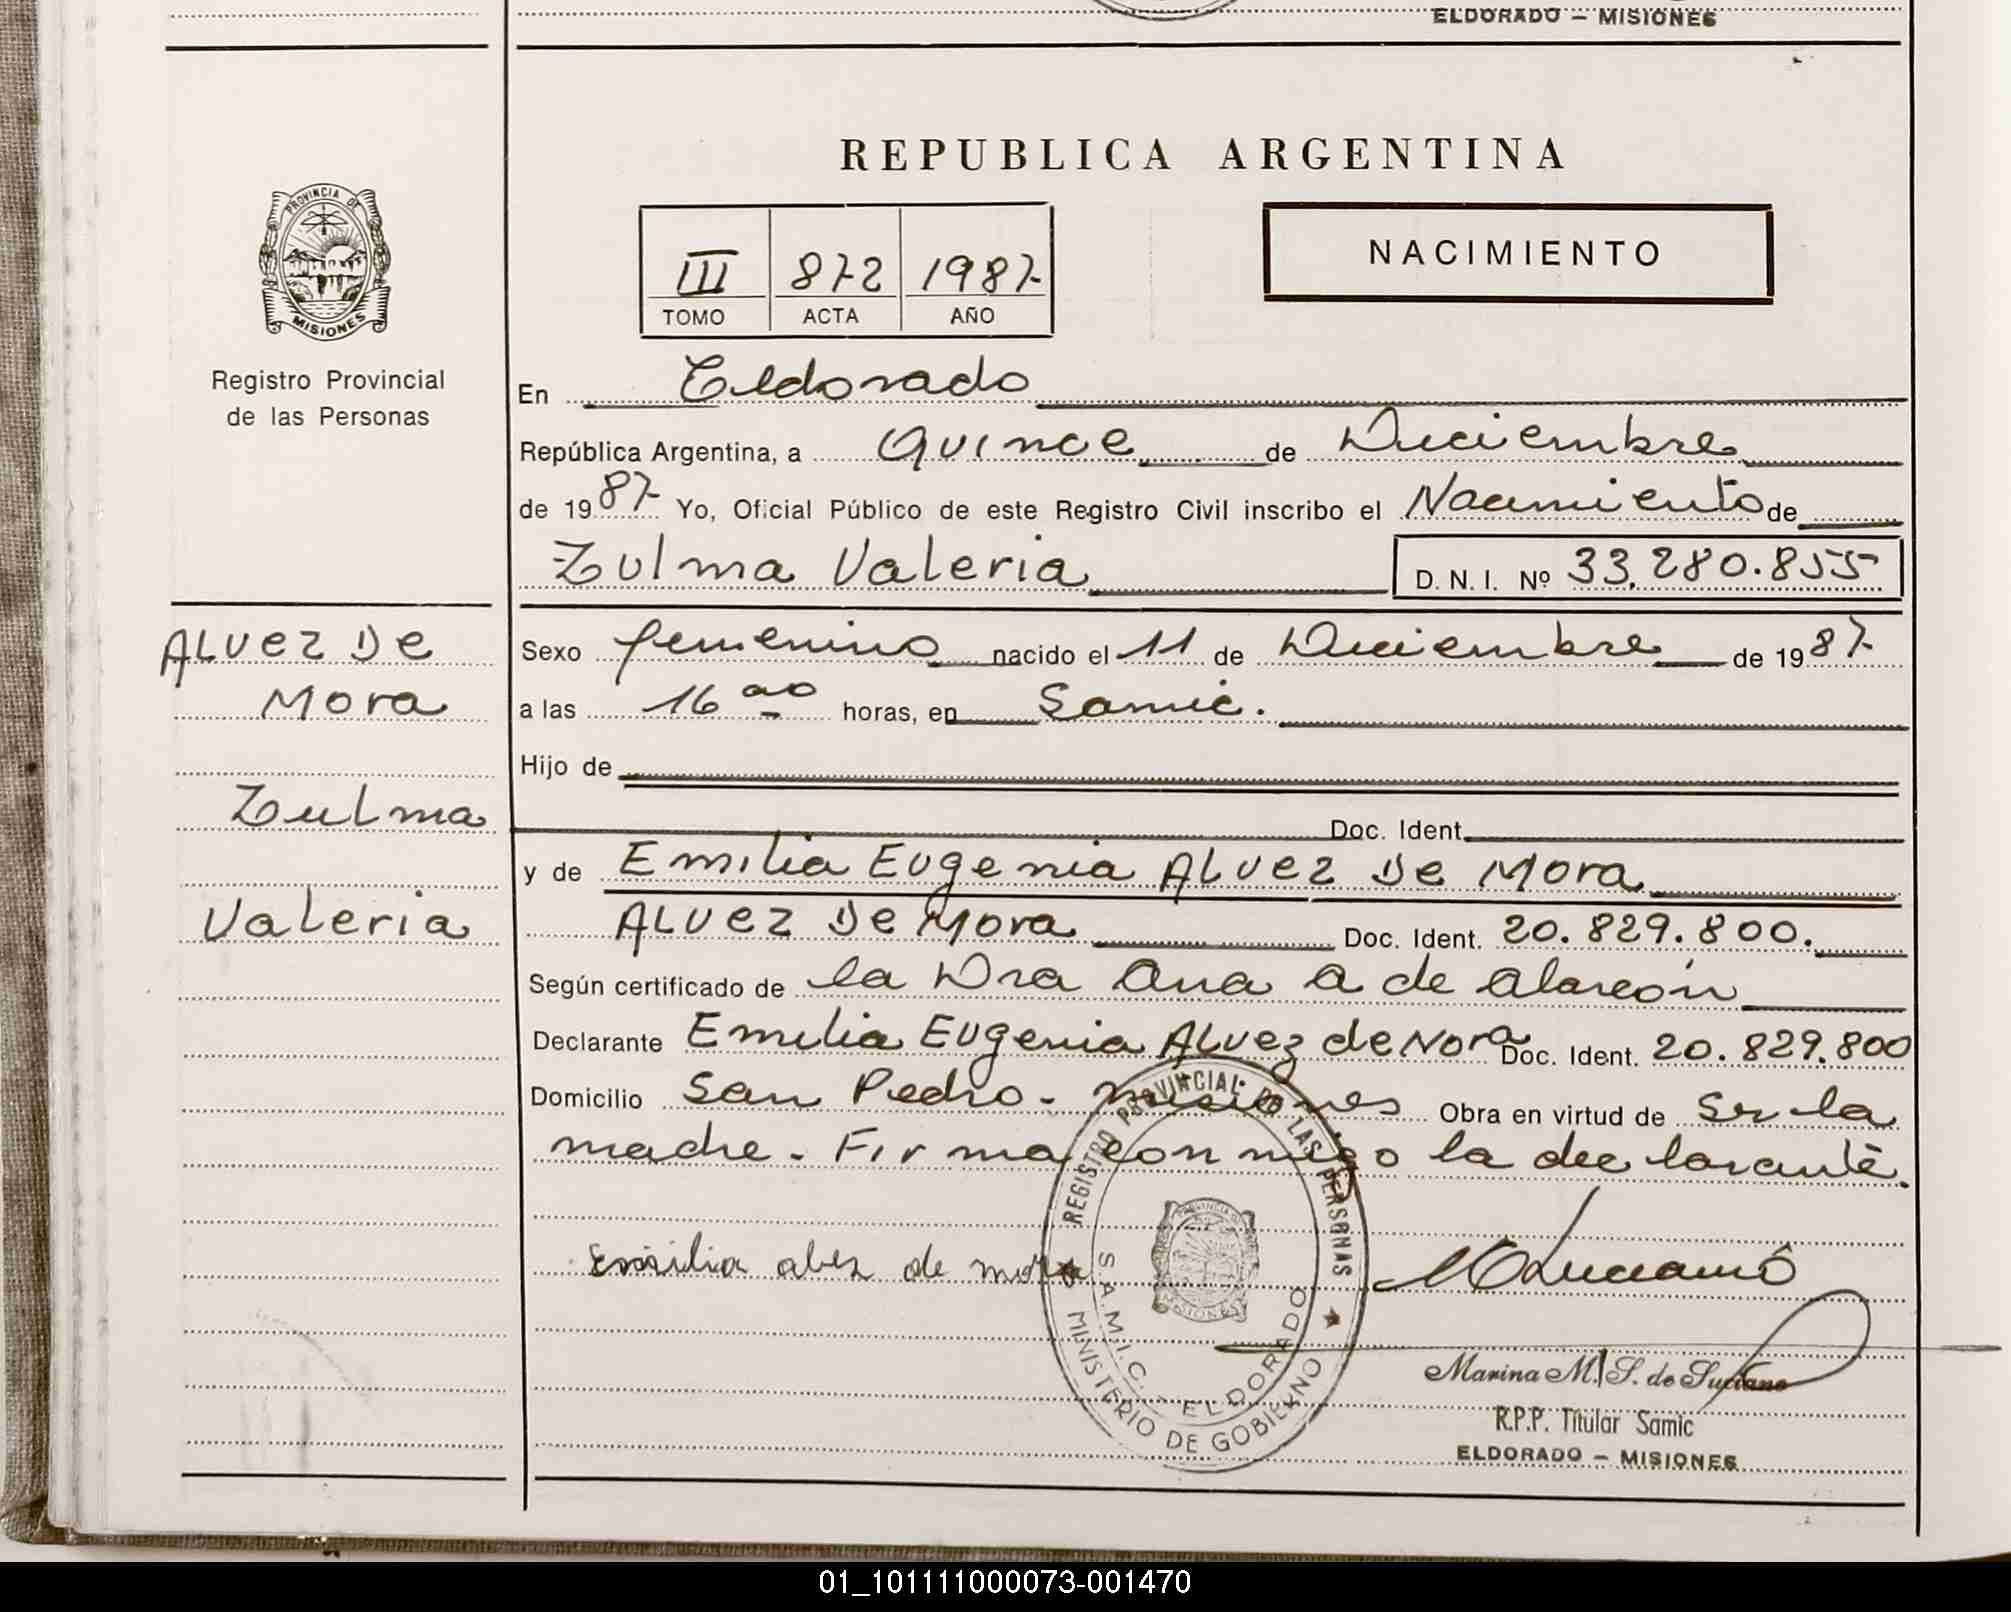 ELDORADO — MISIONES
REPUBLICA ARGENTINA
PROVINCIA DE
MISIONES
Registro Provincial
de las Personas
III 872 1987
TOMO ACTA AÑO
NACIMIENTO
En Eldorado
República Argentina, a Quince de Diciembre
de 1987 Yo, Oficial Público de este Registro Civil inscribo el Nacimiento de
Zulma Valeria D. N. I. Nº 33.280.855
ALVEZ DE
MORA
Zulma
Valeria
Sexo femenino nacido el 11 de Diciembre de 1987
a las 16 00 horas, en Samic.
Hijo de
Doc. Ident.
y de Emilia Eugenia ALVEZ DE MORA
ALVEZ DE MORA Doc. Ident. 20.829.800.
Según certificado de la Dra Ana A de Alarcón
Declarante Emilia Eugenia ALVEZ de Mora Doc. Ident. 20.829.800
Domicilio San Pedro - Misiones Obra en virtud de ser la
madre - Firma conmigo la declarante.
Emilia alvez de mora
REGISTRO PROVINCIAL DE LAS PERSONAS
MINISTERIO DE GOBIERNO
S.A.M.I.C. - ELDORADO
PROVINCIA DE
MISIONES
Marina M. S. de Luciano
R.P.P. Titular Samic
ELDORADO — MISIONES
01_101111000073-001470